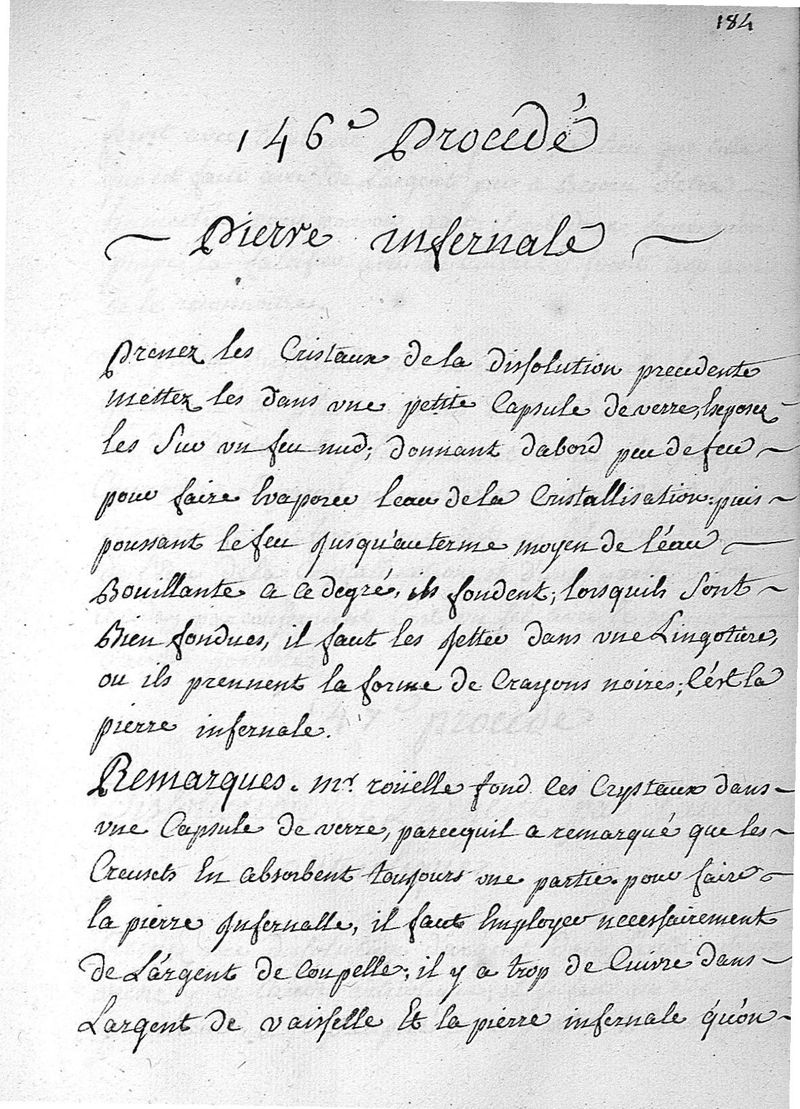 184
146e Procedé
Pierre infernale
Prenez les Cristaux de la dissolution precedente
mettez les dans vne petite Capsule de verre, Exposez
les Sur vn feu nud; donnant dabord peu de feu
pour faire Evaporer leau de la Cristallisation: puis
poussant le feu jusqu'au terme moyen de l'éau
Bouillante a ce degré, ils fondent; lorsquils Sont
Bien fondues, il faut les jetter dans vne Lingotiere,
ou ils prennent la forme de Crayons noires; C'ést la
pierre infernale.
Remarques. mr. roüelle fond Ces Crystaux dans
vne Capsule de verre, parcequil a remarqué que les
Creusets En absorbent toujours vne partie. pour faire
la pierre jnfernalle, il faut Employer necessairement
de L'argent de Coupelle; il y a trop de Cuivre dans
Largent de vaisselle Et la pierre infernale qu'on